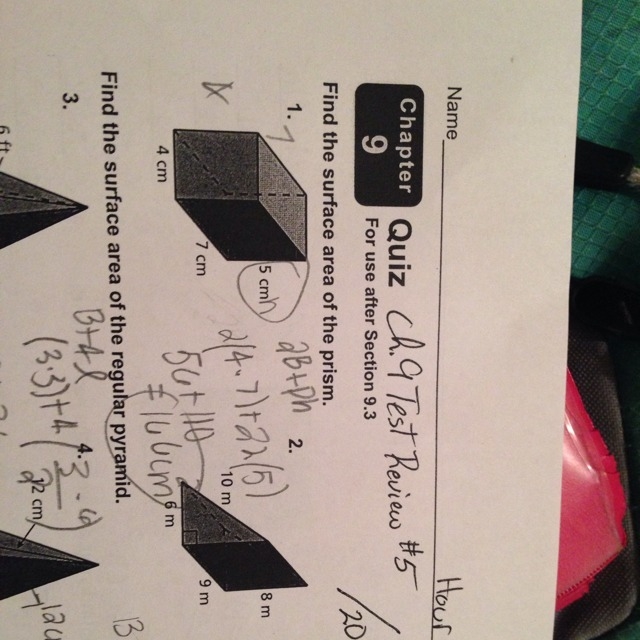 Name
Hour
Chapter 9
Quiz Ch. 9 Test Review #5
For use after Section 9.3
/20
Find the surface area of the prism.
1.
5 cm h
7 cm
4 cm
2B+Ph
2(4·7)+22(5)
56+110
166cm
2.
10 m
6 m
8 m
9 m
Find the surface area of the regular pyramid.
3.
6 ft
B+4
(3·3)+4(
4.
12 cm